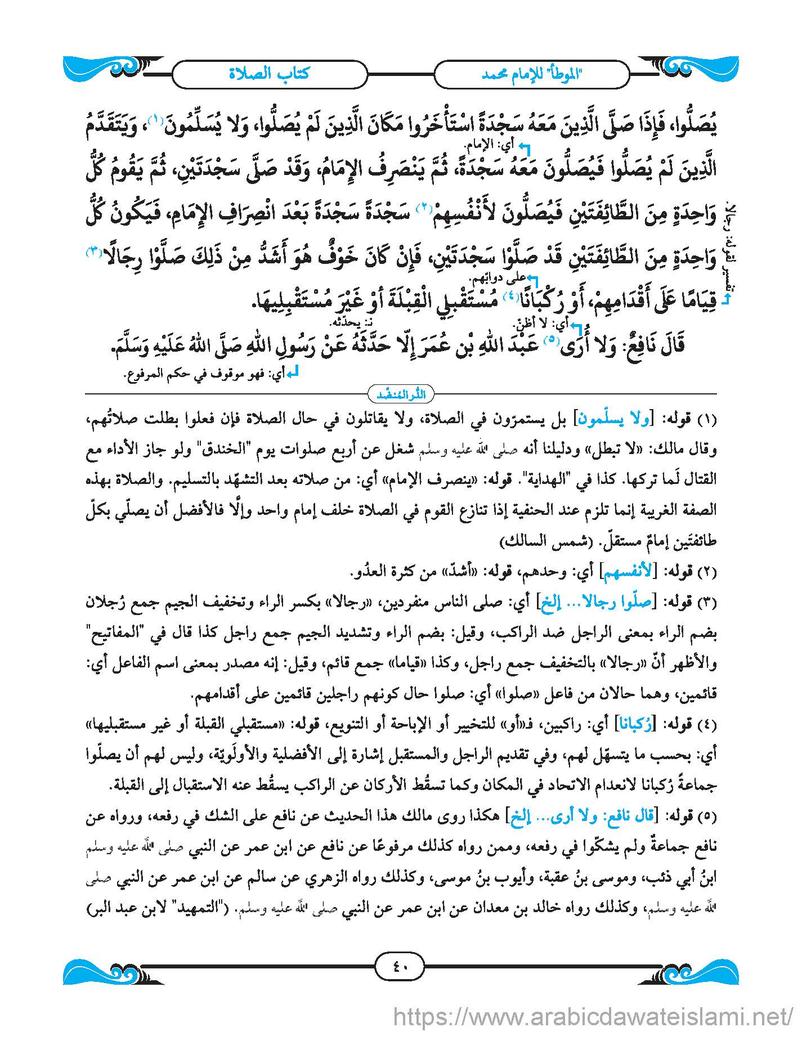 "الموطأ" للإمام محمد
كتاب الصلاة
يُصَلُّوا، فَإِذَا صَلَّى الَّذِينَ مَعَهُ سَجْدَةً اسْتَأْخَرُوا مَكَانَ الَّذِينَ لَمْ يُصَلُّوا، وَلا يُسَلِّمُونَ(١)، وَيَتَقَدَّمُ
أي: الإمام.
الَّذِينَ لَمْ يُصَلُّوا فَيُصَلُّونَ مَعَهُ سَجْدَةً، ثُمَّ يَنْصَرِفُ الإِمَامُ، وَقَدْ صَلَّى سَجْدَتَيْنِ، ثُمَّ يَقُومُ كُلُّ
وَاحِدَةٍ مِنَ الطَّائِفَتَيْنِ فَيُصَلُّونَ لأَنْفُسِهِمْ(٢) سَجْدَةً سَجْدَةً بَعْدَ انْصِرَافِ الإِمَامِ، فَيَكُونُ كُلُّ
وَاحِدَةٍ مِنَ الطَّائِفَتَيْنِ قَدْ صَلَّوْا سَجْدَتَيْنِ، فَإِنْ كَانَ خَوْفٌ هُوَ أَشَدُّ مِنْ ذَلِكَ صَلَّوْا رِجَالًا(٣)
تفسير لقوله: رجالا.
على دوابّهم.
قِيَامًا عَلَى أَقْدَامِهِمْ، أَوْ رُكْبَانًا(٤) مُسْتَقْبِلِي الْقِبْلَةِ أوْ غَيْرَ مُسْتَقْبِلِيهَا.
أي: لا أظنّ.
نـ: يحدّثه.
قَالَ نَافِعٌ: وَلا أُرَى(٥) عَبْدَ اللهِ بْن عُمَرَ إِلّا حَدَّثَهُ عَنْ رَسُولِ اللهِ صَلَّى اللهُ عَلَيْهِ وَسَلَّمَ.
أي: فهو موقوف في حكم المرفوع.
الدُّر المُنضَّد
(١) قوله: [ولا يسلّمون] بل يستمرّون في الصلاة، ولا يقاتلون في حال الصلاة فإن فعلوا بطلت صلاتُهم،
وقال مالك: «لا تبطل» ودليلنا أنه صلى الله عليه وسلم شغل عن أربع صلوات يوم "الخندق" ولو جاز الأداء مع
القتال لَما تركها. كذا في "الهداية". قوله: «ينصرف الإمام» أي: من صلاته بعد التشهّد بالتسليم. والصلاة بهذه
الصفة الغريبة إنما تلزم عند الحنفية إذا تنازع القوم في الصلاة خلف إمام واحد وإلَّا فالأفضل أن يصلّي بكلّ
طائفتَين إمامٌ مستقلّ. (شمس السالك)
(٢) قوله: [لأنفسهم] أي: وحدهم، قوله: «أشدّ» من كثرة العدُو.
(٣) قوله: [صلّوا رجالا... إلخ] أي: صلى الناس منفردين، «رجالا» بكسر الراء وتخفيف الجيم جمع رُجلان
بضم الراء بمعنى الراجل ضد الراكب، وقيل: بضم الراء وتشديد الجيم جمع راجل كذا قال في "المفاتيح"
والأظهر أنّ «رجالا» بالتخفيف جمع راجل، وكذا «قياما» جمع قائم، وقيل: إنه مصدر بمعنى اسم الفاعل أي:
قائمين، وهما حالان من فاعل «صلوا» أي: صلوا حال كونهم راجلين قائمين على أقدامهم.
(٤) قوله: [رُكبانا] أي: راكبين، فـ«أو» للتخيير أو الإباحة أو التنويع، قوله: «مستقبلي القبلة أو غير مستقبليها»
أي: بحسب ما يتسهّل لهم، وفي تقديم الراجل والمستقبل إشارة إلى الأفضلية والأولَويّة، وليس لهم أن يصلّوا
جماعةً رُكبانا لانعدام الاتحاد في المكان وكما تسقُط الأركان عن الراكب يسقُط عنه الاستقبال إلى القبلة.
(٥) قوله: [قال نافع: ولا أرى... إلخ] هكذا روى مالك هذا الحديث عن نافع على الشك في رفعه، ورواه عن
نافع جماعةٌ ولم يشكّوا في رفعه، وممن رواه كذلك مرفوعًا عن نافع عن ابن عمر عن النبي صلى الله عليه وسلم
ابنُ أبي ذئب، وموسى بنُ عقبة، وأيوب بنُ موسى، وكذلك رواه الزهري عن سالم عن ابن عمر عن النبي صلى
الله عليه وسلم، وكذلك رواه خالد بن معدان عن ابن عمر عن النبي صلى الله عليه وسلم. ("التمهيد" لابن عبد البر)
٤٠
https://www.arabicdawateislami.net/